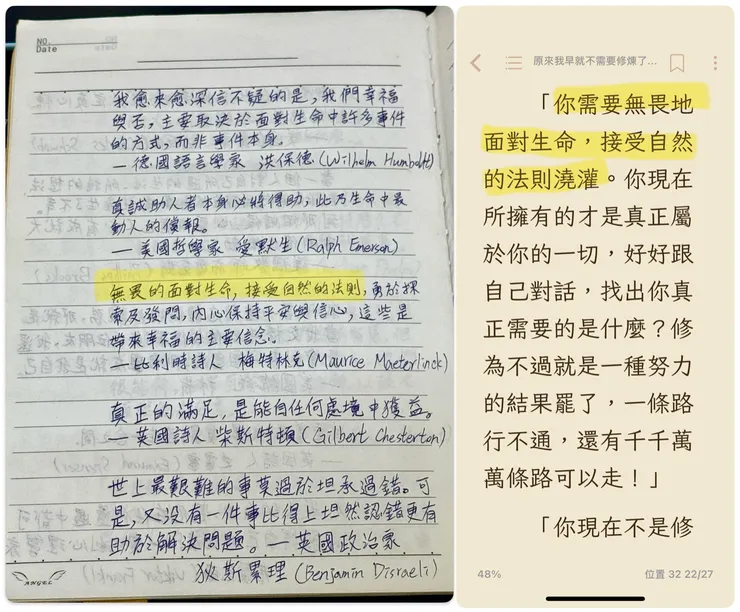 NO.
Date
我愈來愈深信不疑的是，我們幸福
與否，主要取決於面對生命中許多事件
的方式，而非事件本身。
—德國語言學家 洪保德(Wilhelm Humboldt)
真誠助人者本身必將得助，此乃生命中最
動人的償報。
—美國哲學家 愛默生(Ralph Emerson)
無畏的面對生命，接受自然的法則，勇於探
索及發問，內心保持平安與信心，這些是
帶來幸福的主要信念。
—比利時詩人 梅特林克(Maurice Maeterlinck)
真正的滿足，是能自任何處境中獲益。
—英國詩人 柴斯特頓(Gilbert Chesterton)
世上最艱難的事莫過於坦承過錯。可
是，又沒有一件事比得上坦然認錯更有
助於解決問題。—英國政治家
狄斯累理(Benjamin Disraeli)
ANGEL
原來我早就不需要修煉了...
「你需要無畏地
面對生命，接受自然
的法則澆灌。你現在
所擁有的才是真正屬
於你的一切，好好跟
自己對話，找出你真
正需要的是什麼？修
為不過就是一種努力
的結果罷了，一條路
行不通，還有千千萬
萬條路可以走！」
「你現在不是修
48%
位置 32 22/27